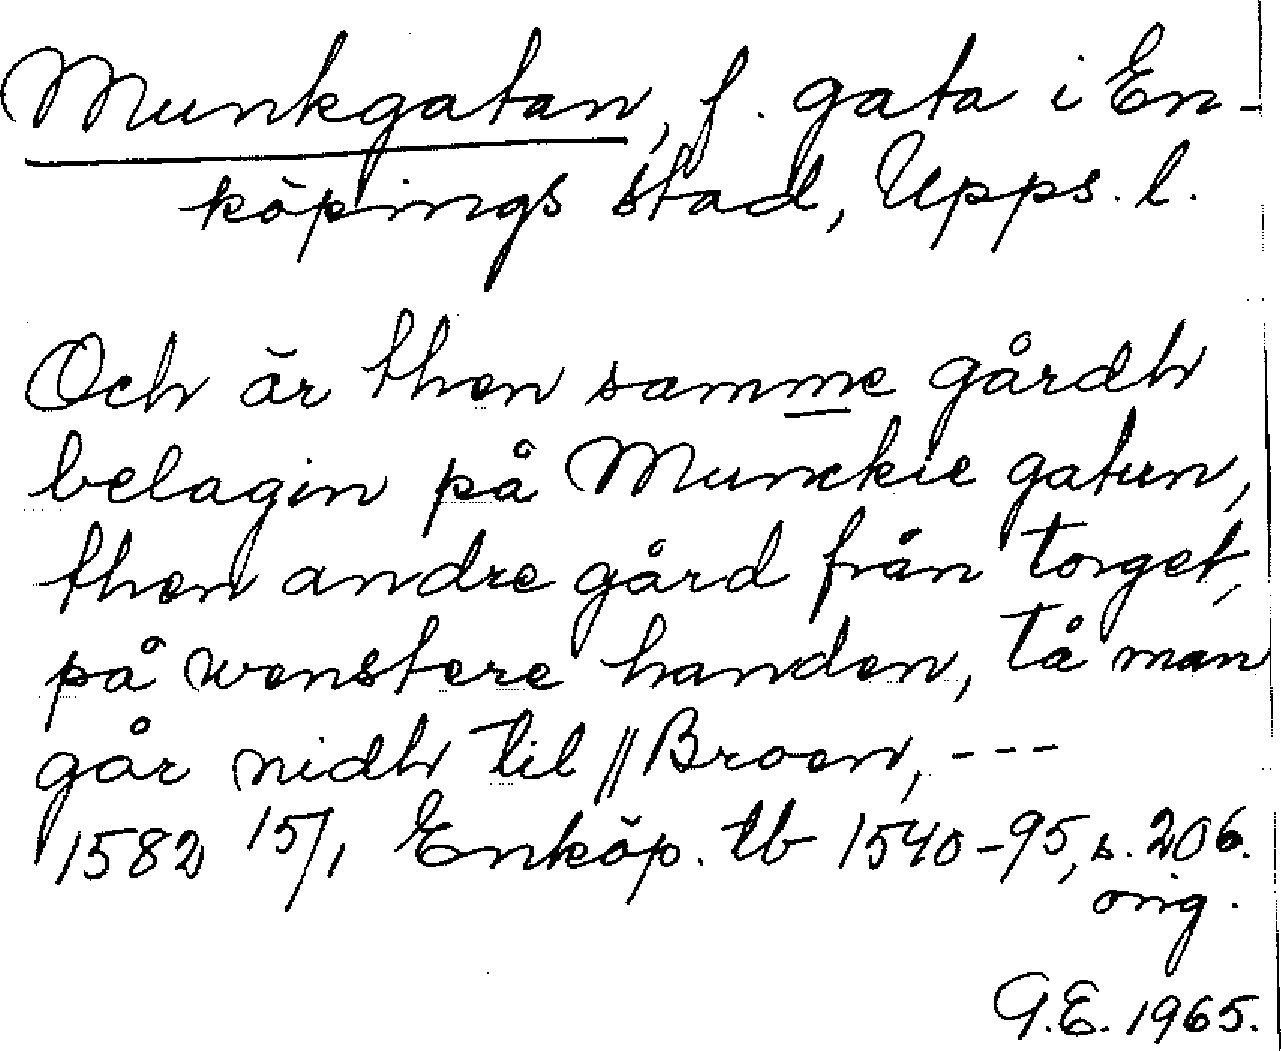 Munkgatan, f. gata i En-
köpings stad, Upps. l.
Och är then samme gårdh
belagin på Munckie gatun,
then andre gård från torget,
på wenstere handen, tå man
går nidh til || Broen, ---
1582 15/1 Enköp. tb 1540-95, s. 206.
orig.
G.E. 1965.